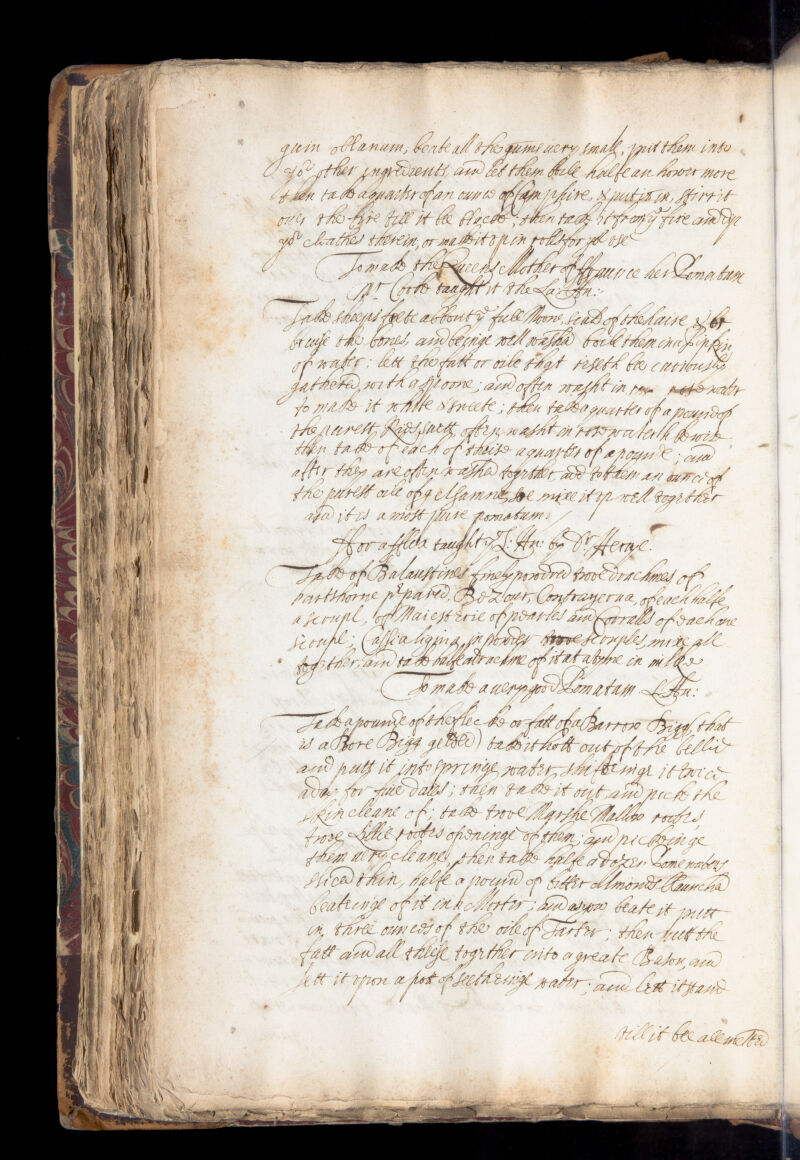 gum olibanum, beate all the gums very small, put them into
yor other ingredients and let them boile halfe an hower more
then take a quarter of an ounce of Camphire, & put it in, stirr it
over the fyre till it be ; then take it from ye fire and dip
yor cloathes therein, or make it up in rolls for yor use
To make the Queens Mother of ffraunce her Pomatum
Mr taught it the La: Hu:
Take sheeps feete about ye full Moon, scald of the haire &
bruise the bones, and beinge well washt boile them in a pipkin
of water: lett the fatt or oile that riseth be curiouslie
gathered with a spoone; and often washt in rose water
to make it white & sweete; then take a quarter of a pound of
the purest suett often washt in rosewater likewise
then take of each of theise a quarter of a pound; and
after they are often washed together, add to them an ounce of
the purest oile of gelsamne, mixe it up well together
and it is a most pure pomatum.
For a fflix taught ye L: Hu: by Dr Hervye.
Take of Balaustines finely powdred twoe drachmes of
hartshorne prpared, Bezour, Contrayerva, of each halfe
a scrupl, of Maiesterie of pearles and Corralls of each one
scrupl; Cassia lignia in powder twoe scruples, mixe all
together, and take halfe a drachme of it at a tyme in milke
To make a very good Pomatum L Hu:
Take a pound of the flecke or fatt of a Barrow Pigg (that
is a Bore Pigg gelded) take it hott out of the bellie
and putt it into springe water, shifteinge it twice
a day for five daies; then take it out and pick the
skin cleane of; take twoe Marshe Mallow rootes,
twoe Lillie rootes openinge of them; and pickeinge
them very cleane, then take halfe a dozen Pomewaters
sliced thin, halfe a pound of bitter Almonds blaunched
beateinge of it in a Morter; and as you beate it putt
in three ounces of the oile of Tarter; then putt the
fatt and all these together into a greate Bason, and
sett it upon a pott of seetheinge water; and lett it stand
till it bee all melted